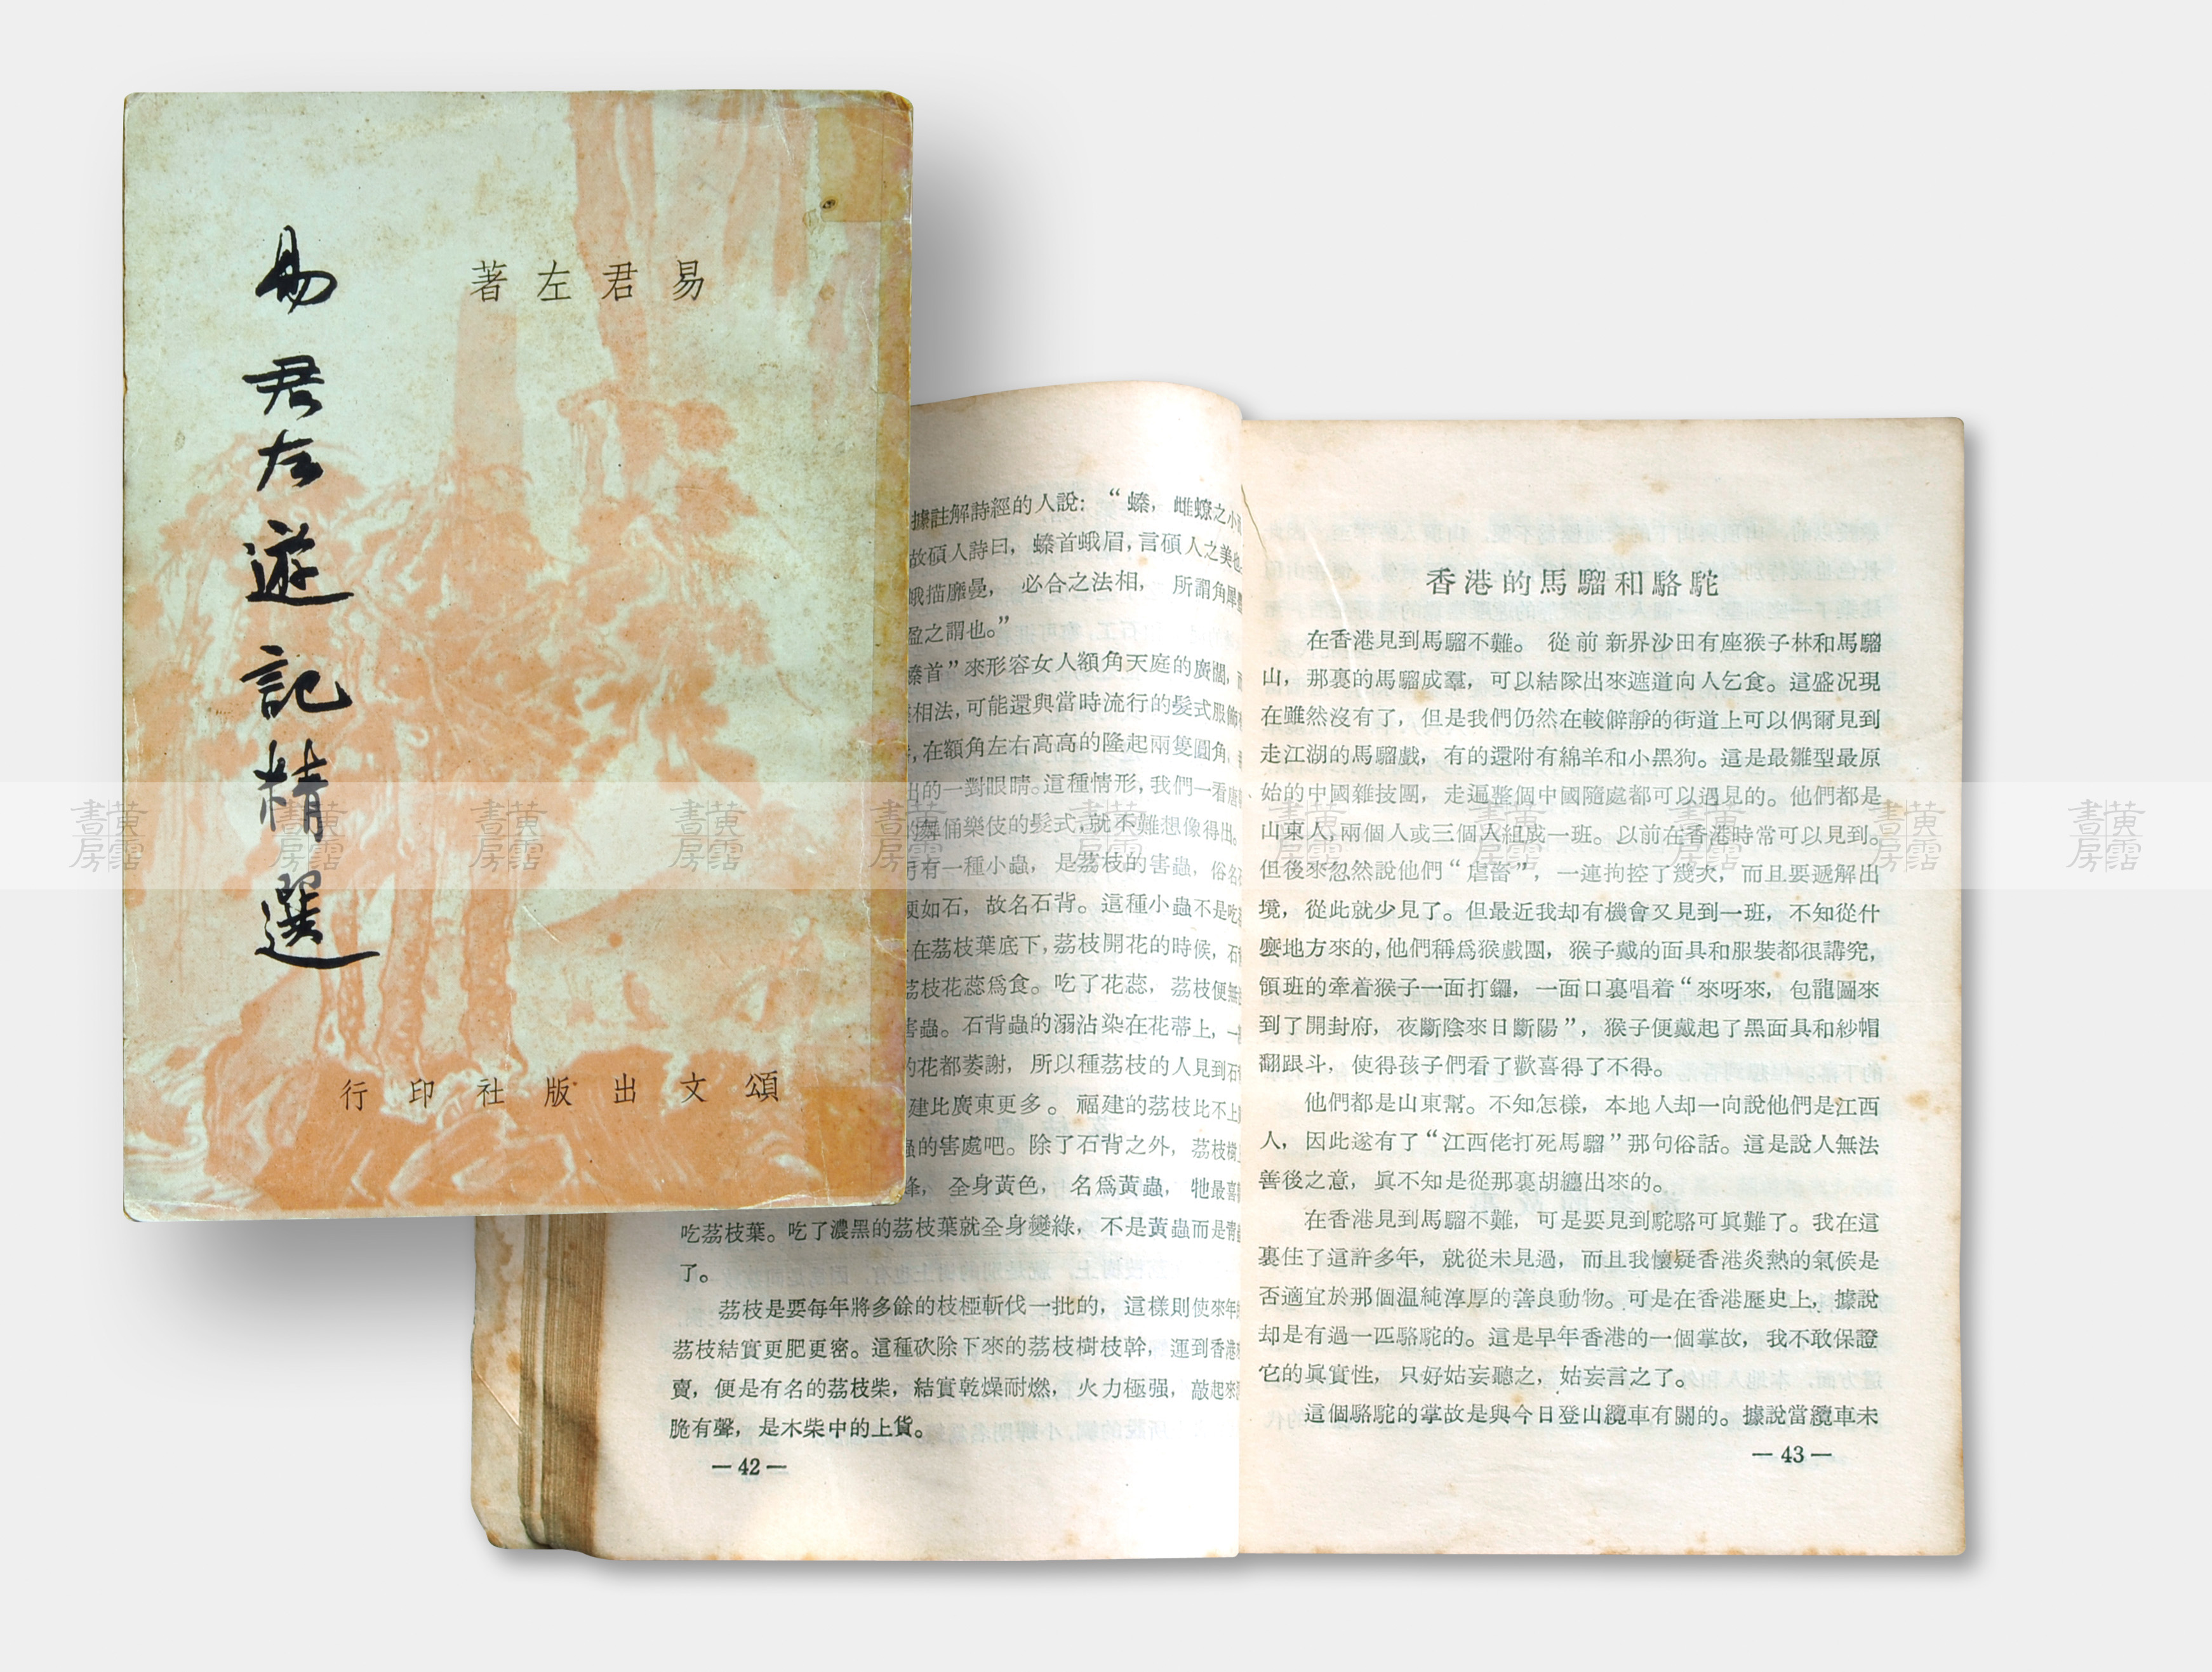 易君左著
易君左遊記精選
頌文出版社印行
據註解詩經的人說：“螓，雌蟟之小
故碩人詩曰，螓首蛾眉，言碩人之美也
蛾描靡曼， 必合之法相， 所謂角犀豐
盈之謂也。”
螓首”來形容女人額角天庭的廣闊，
相法，可能還與當時流行的髮式服飾
，在額角左右高高的隆起兩隻圓角，
出的一對眼睛。這種情形，我們一看唐
的舞俑樂伎的髮式，就不難想像得出。
有一種小蟲， 是荔枝的害蟲， 俗名
硬如石， 故名石背。 這種小蟲不是吃
在荔枝葉底下，荔枝開花的時候，石
荔枝花蕊爲食。 吃了花蕊， 荔枝便無
害蟲。 石背蟲的溺沾染在花蒂上，一
的花都萎謝， 所以種荔枝的人見到石
建比廣東更多。 福建的荔枝比不上
蟲的害處吧。除了石背之外， 荔枝樹
， 全身黃色， 名爲黃蟲， 牠最喜
吃荔枝葉。吃了濃黑的荔枝葉就全身變綠， 不是黃蟲而是靑蟲
了。
荔枝是要每年將多餘的枝椏斬伐一批的， 這樣則使來年
荔枝結實更肥更密。這種砍除下來的荔枝樹枝幹， 運到香港
賣， 便是有名的荔枝柴， 結實乾燥耐燃， 火力極强， 敲起來
脆有聲， 是木柴中的上貨。
— 42 —
香港的馬騮和駱駝
在香港見到馬騮不難。 從前新界沙田有座猴子林和馬騮
山， 那裏的馬騮成羣， 可以結隊出來遮道向人乞食。這盛况現
在雖然沒有了， 但是我們仍然在較僻靜的街道上可以偶爾見到
走江湖的馬騮戲， 有的還附有綿羊和小黑狗。這是最雛型最原
始的中國雜技團， 走遍整個中國隨處都可以遇見的。他們都是
山東人，兩個人或三個人組成一班。以前在香港時常可以見到。
但後來忽然說他們“虐畜”， 一連拘控了幾次， 而且要遞解出
境， 從此就少見了。但最近我却有機會又見到一班， 不知從什
麽地方來的，他們稱爲猴戲團， 猴子戴的面具和服裝都很講究，
領班的牽着猴子一面打鑼， 一面口裏唱着“來呀來， 包龍圖來
到了開封府， 夜斷陰來日斷陽”， 猴子便戴起了黑面具和紗帽
翻跟斗， 使得孩子們看了歡喜得了不得。
他們都是山東幫。不知怎樣， 本地人却一向說他們是江西
人， 因此遂有了“江西佬打死馬騮”那句俗話。這是說人無法
善後之意， 眞不知是從那裏胡纏出來的。
在香港見到馬騮不難， 可是要見到駝駱可眞難了。我在這
裏住了這許多年， 就從未見過， 而且我懷疑香港炎熱的氣候是
否適宜於那個温純淳厚的善良動物。可是在香港歷史上， 據說
却是有過一匹駱駝的。這是早年香港的一個掌故， 我不敢保證
它的眞實性， 只好姑妄聽之， 姑妄言之了。
這個駱駝的掌故是與今日登山纜車有關的。據說當纜車未
— 43 —
黃霑書房